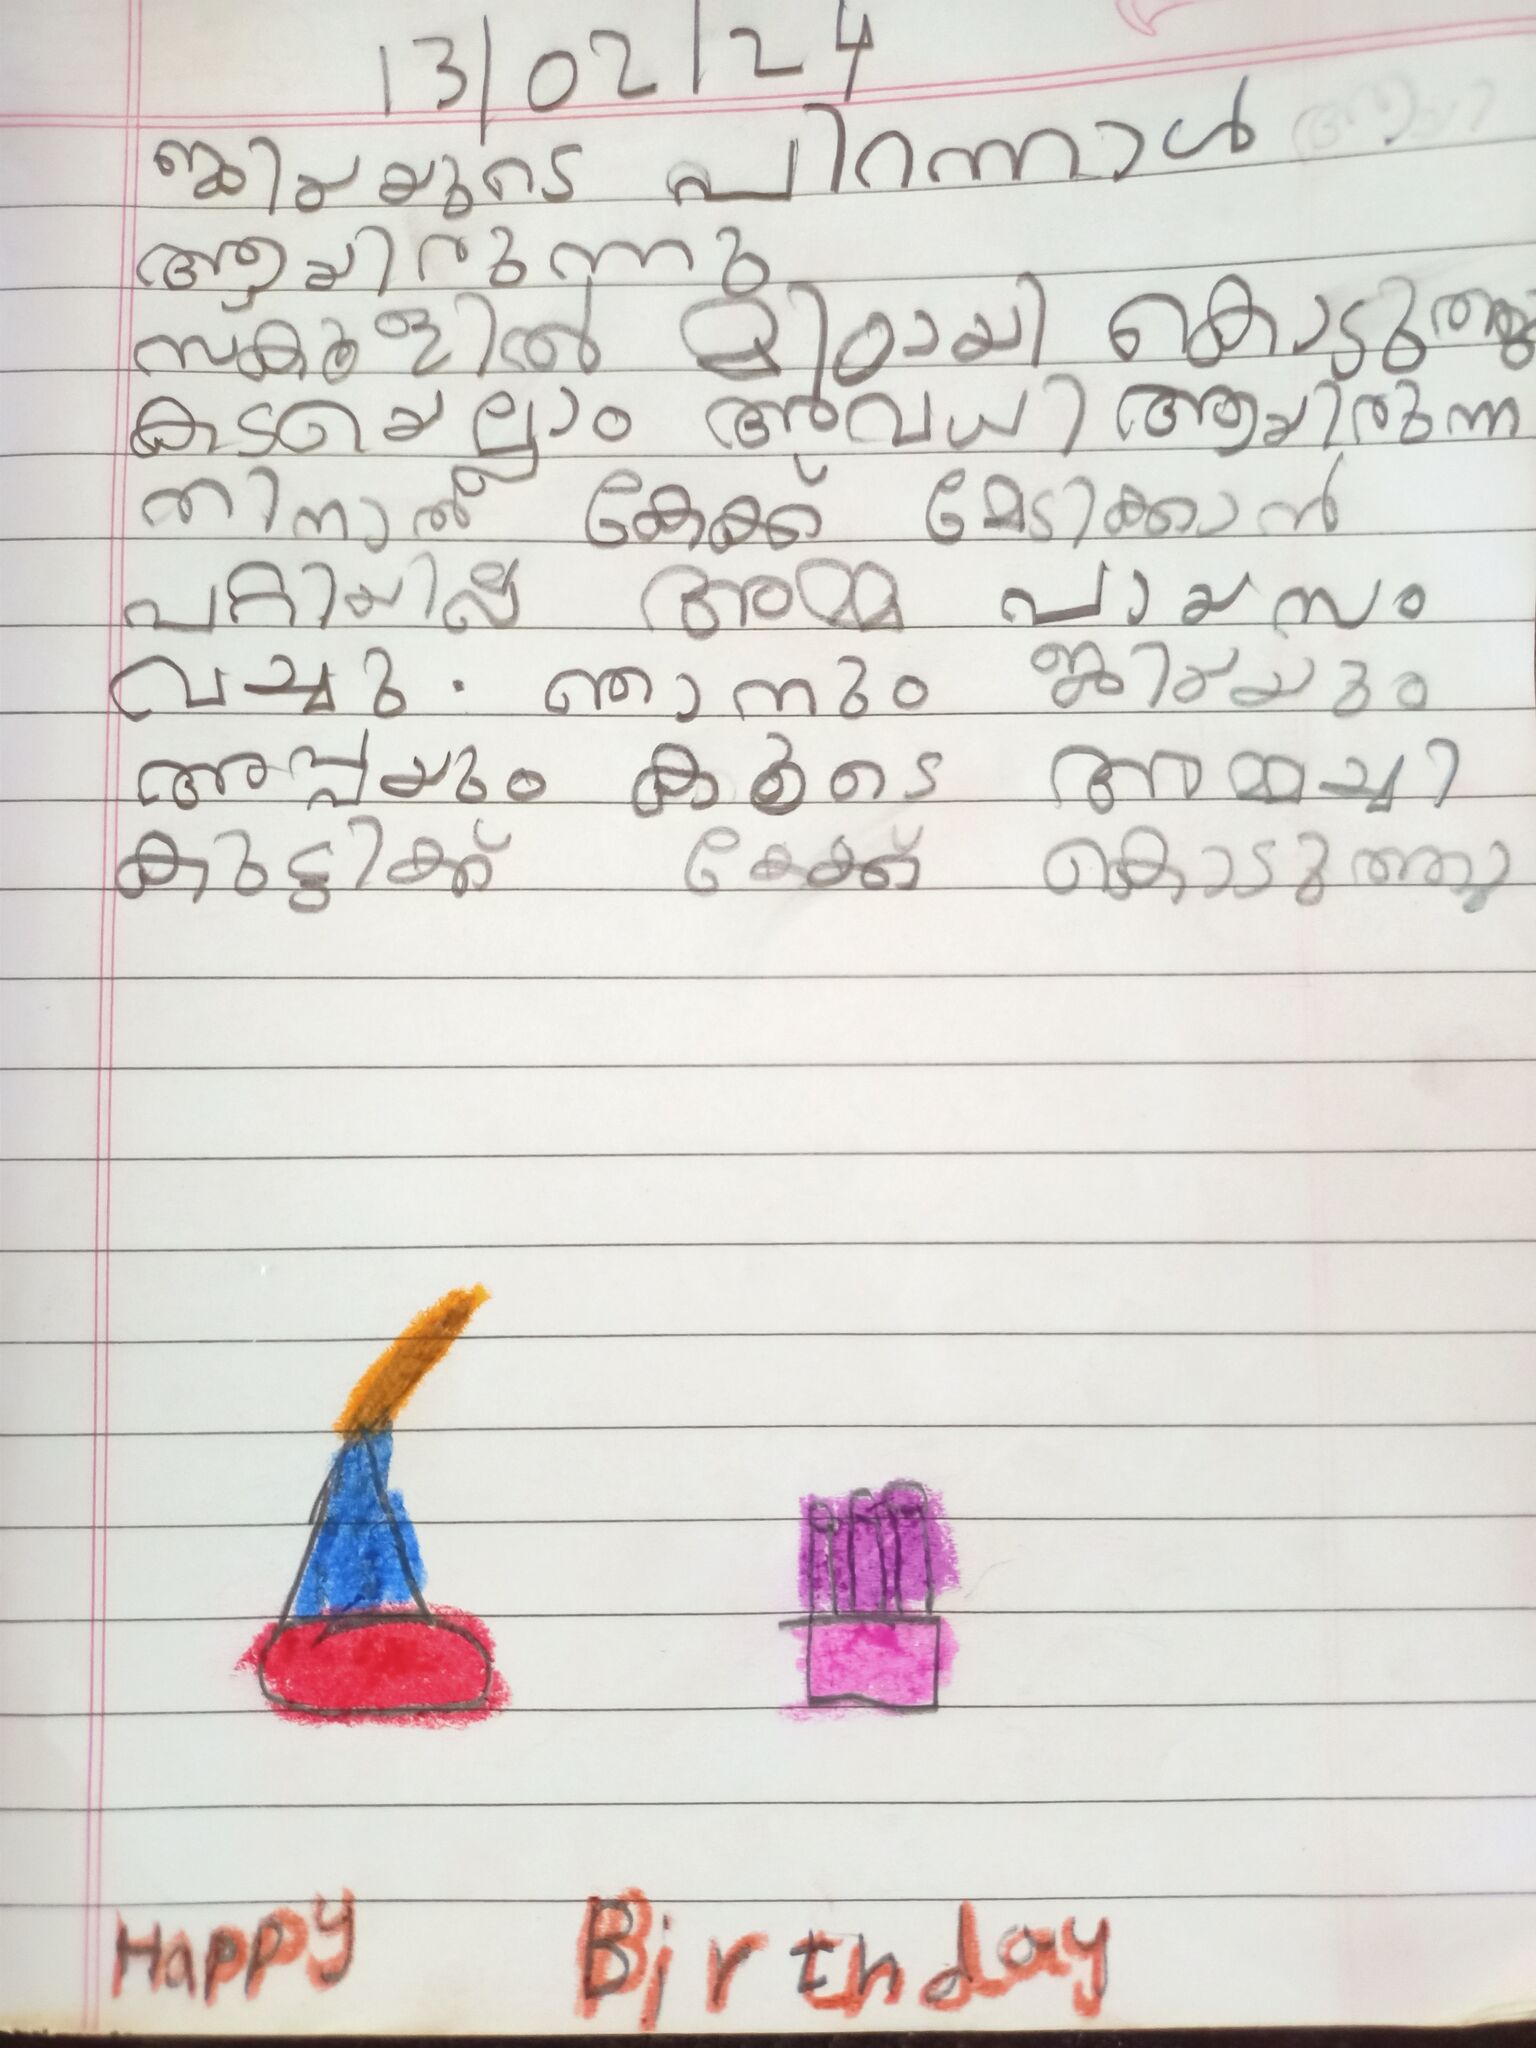 13/02/24
ജിയയുടെ പിറന്നാൾ
ആയിരുന്നു
സ്കുളിൽ മിഠായി കൊടുത്തു
കടയെല്ലാം അവധി ആയിരുന്ന
തിനാൽ കേക്ക് മേടിക്കാൻ
പറ്റിയില്ല അമ്മ പായസം
വച്ചു. ഞാനും ജിയയും
അപ്പയും കൂടെ അമ്മച്ചി
കുട്ടിക്ക് കേക്ക് കൊടുത്തു
Happy Birthday